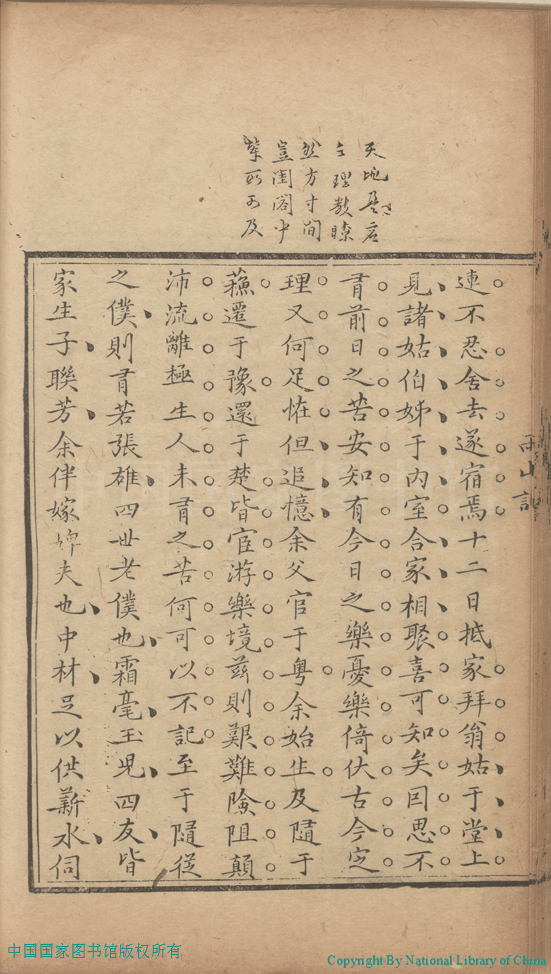 天地盈虚
之理數瞭
然方寸間
豈閨閣中
輩所可及
山記
連不忍舍去遂宿焉十二日抵家拜翁姑于堂上
見諸姑伯姊于内室合家相聚喜可知矣回思不
有前日之苦安知有今日之樂憂樂倚伏古今定
理又何足恠但追憶余父官于粤余始生及隨于
蘓遷于豫還于楚皆宦游樂境兹則艱難險阻顛
沛流離極生人未有之苦何可以不記至于隨從
之僕則有若張雄四世老僕也霜毫玉児四友皆
家生子聯芳余伴嫁婢夫也中材足以供薪水伺
中国国家图书馆版权所有
Copyright By National Library of China